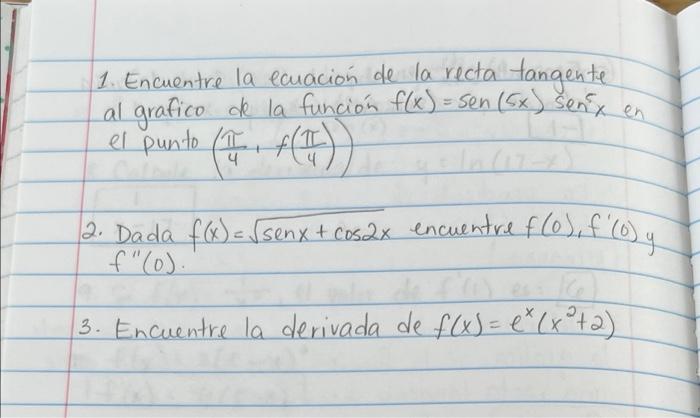 1. Encuentre la ecuación de la recta tangente
al grafico de la función f(x) = sen (5x) sen⁵x en
el punto (π/4, f(π/4))
2. Dada f(x) = √(senx + cos2x) encuentre f(0), f'(0) y
f''(0).
3. Encuentre la derivada de f(x) = eˣ(x²+2)